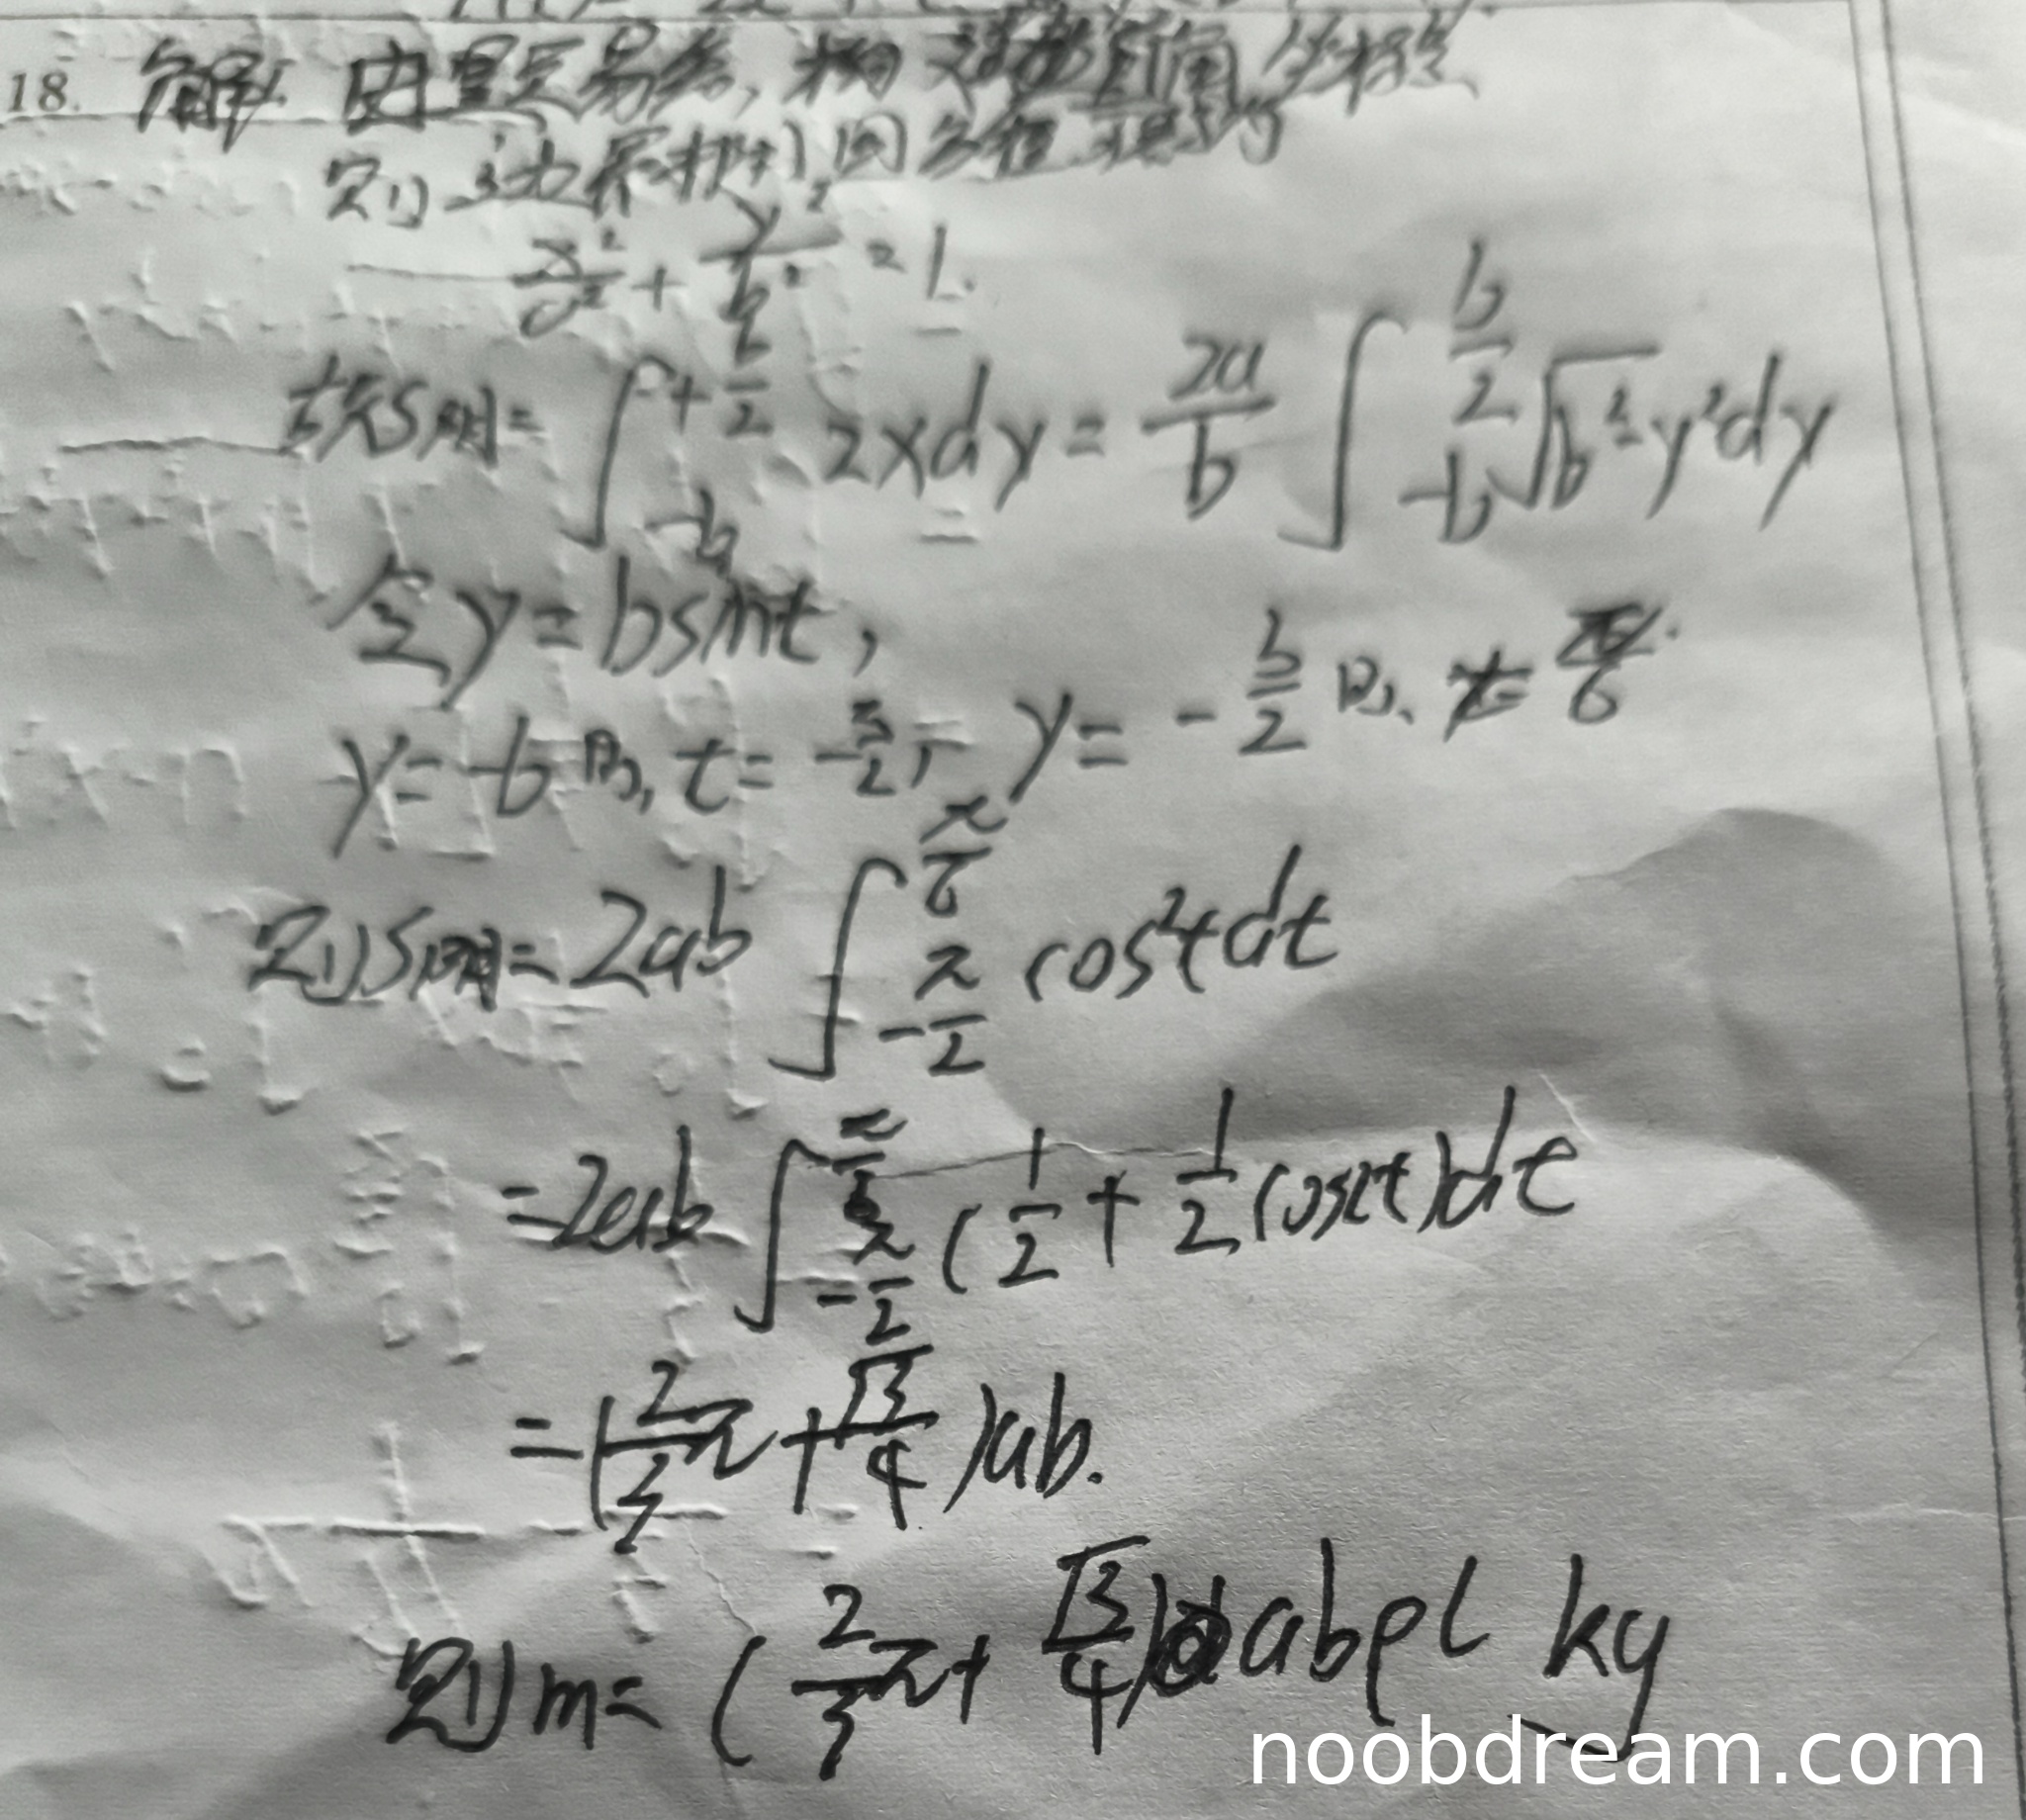 18. 解 由题易知,构建直角坐标系
则边界椭圆方程
x²/a² + y²/b² = 1.
故S阴 = ∫_{-b}^{+b/2} 2xdy = 2a/b ∫_{-b}^{b/2} √(b²-y²) dy
令y = bsint,
y = -b时, t = -π/2, y = -b/2时, t = π/6.
则S阴 = 2ab ∫_{-π/2}^{π/6} cos²tdt
= 2ab ∫_{-π/2}^{π/6} (1/2 + 1/2 cos2t)dt
= (2/3 π + √3/4)ab.
则m = (2/3 π + √3/4)abρl kg
noobdream.com